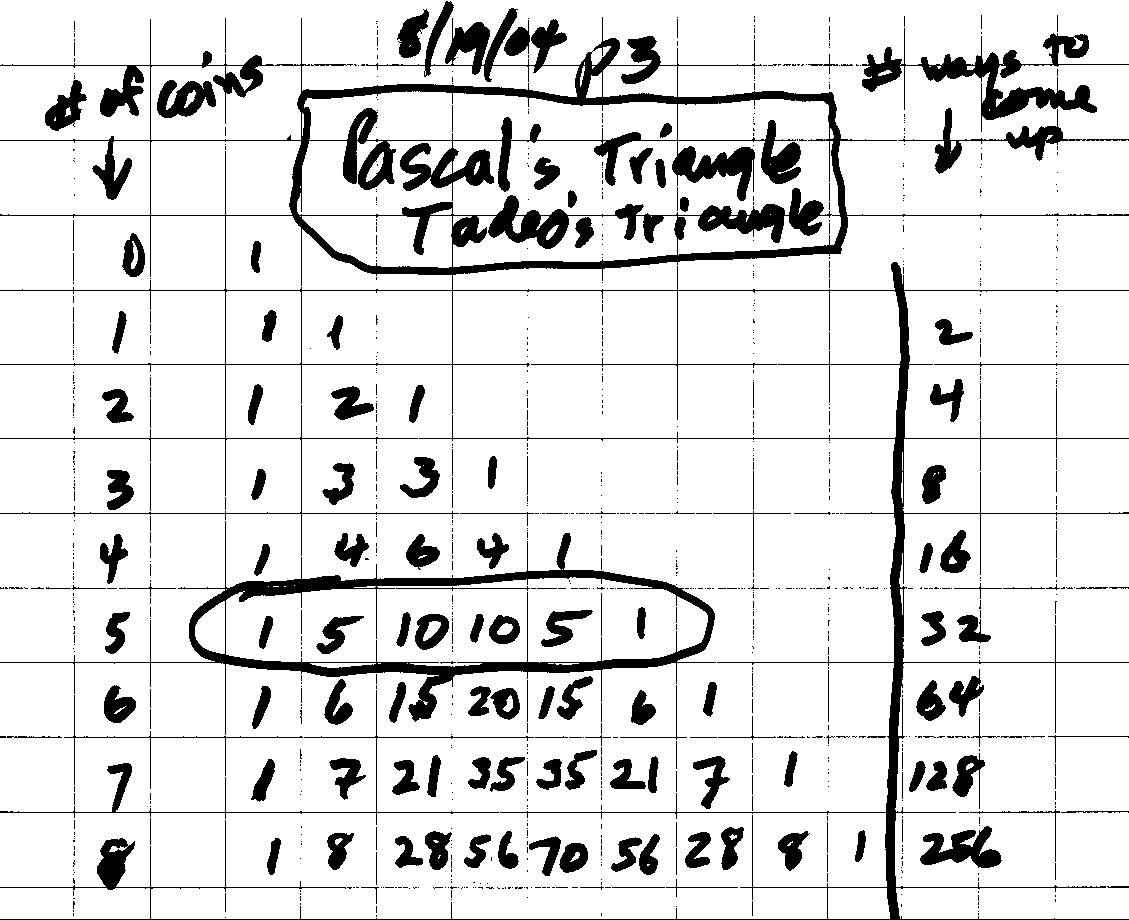 8/19/04 p3
# of coins
# ways to come up
Pascal's Triangle
Tadeo's Triangle
0 1
1 1 1 2
2 1 2 1 4
3 1 3 3 1 8
4 1 4 6 4 1 16
5 1 5 10 10 5 1 32
6 1 6 15 20 15 6 1 64
7 1 7 21 35 35 21 7 1 128
8 1 8 28 56 70 56 28 8 1 256